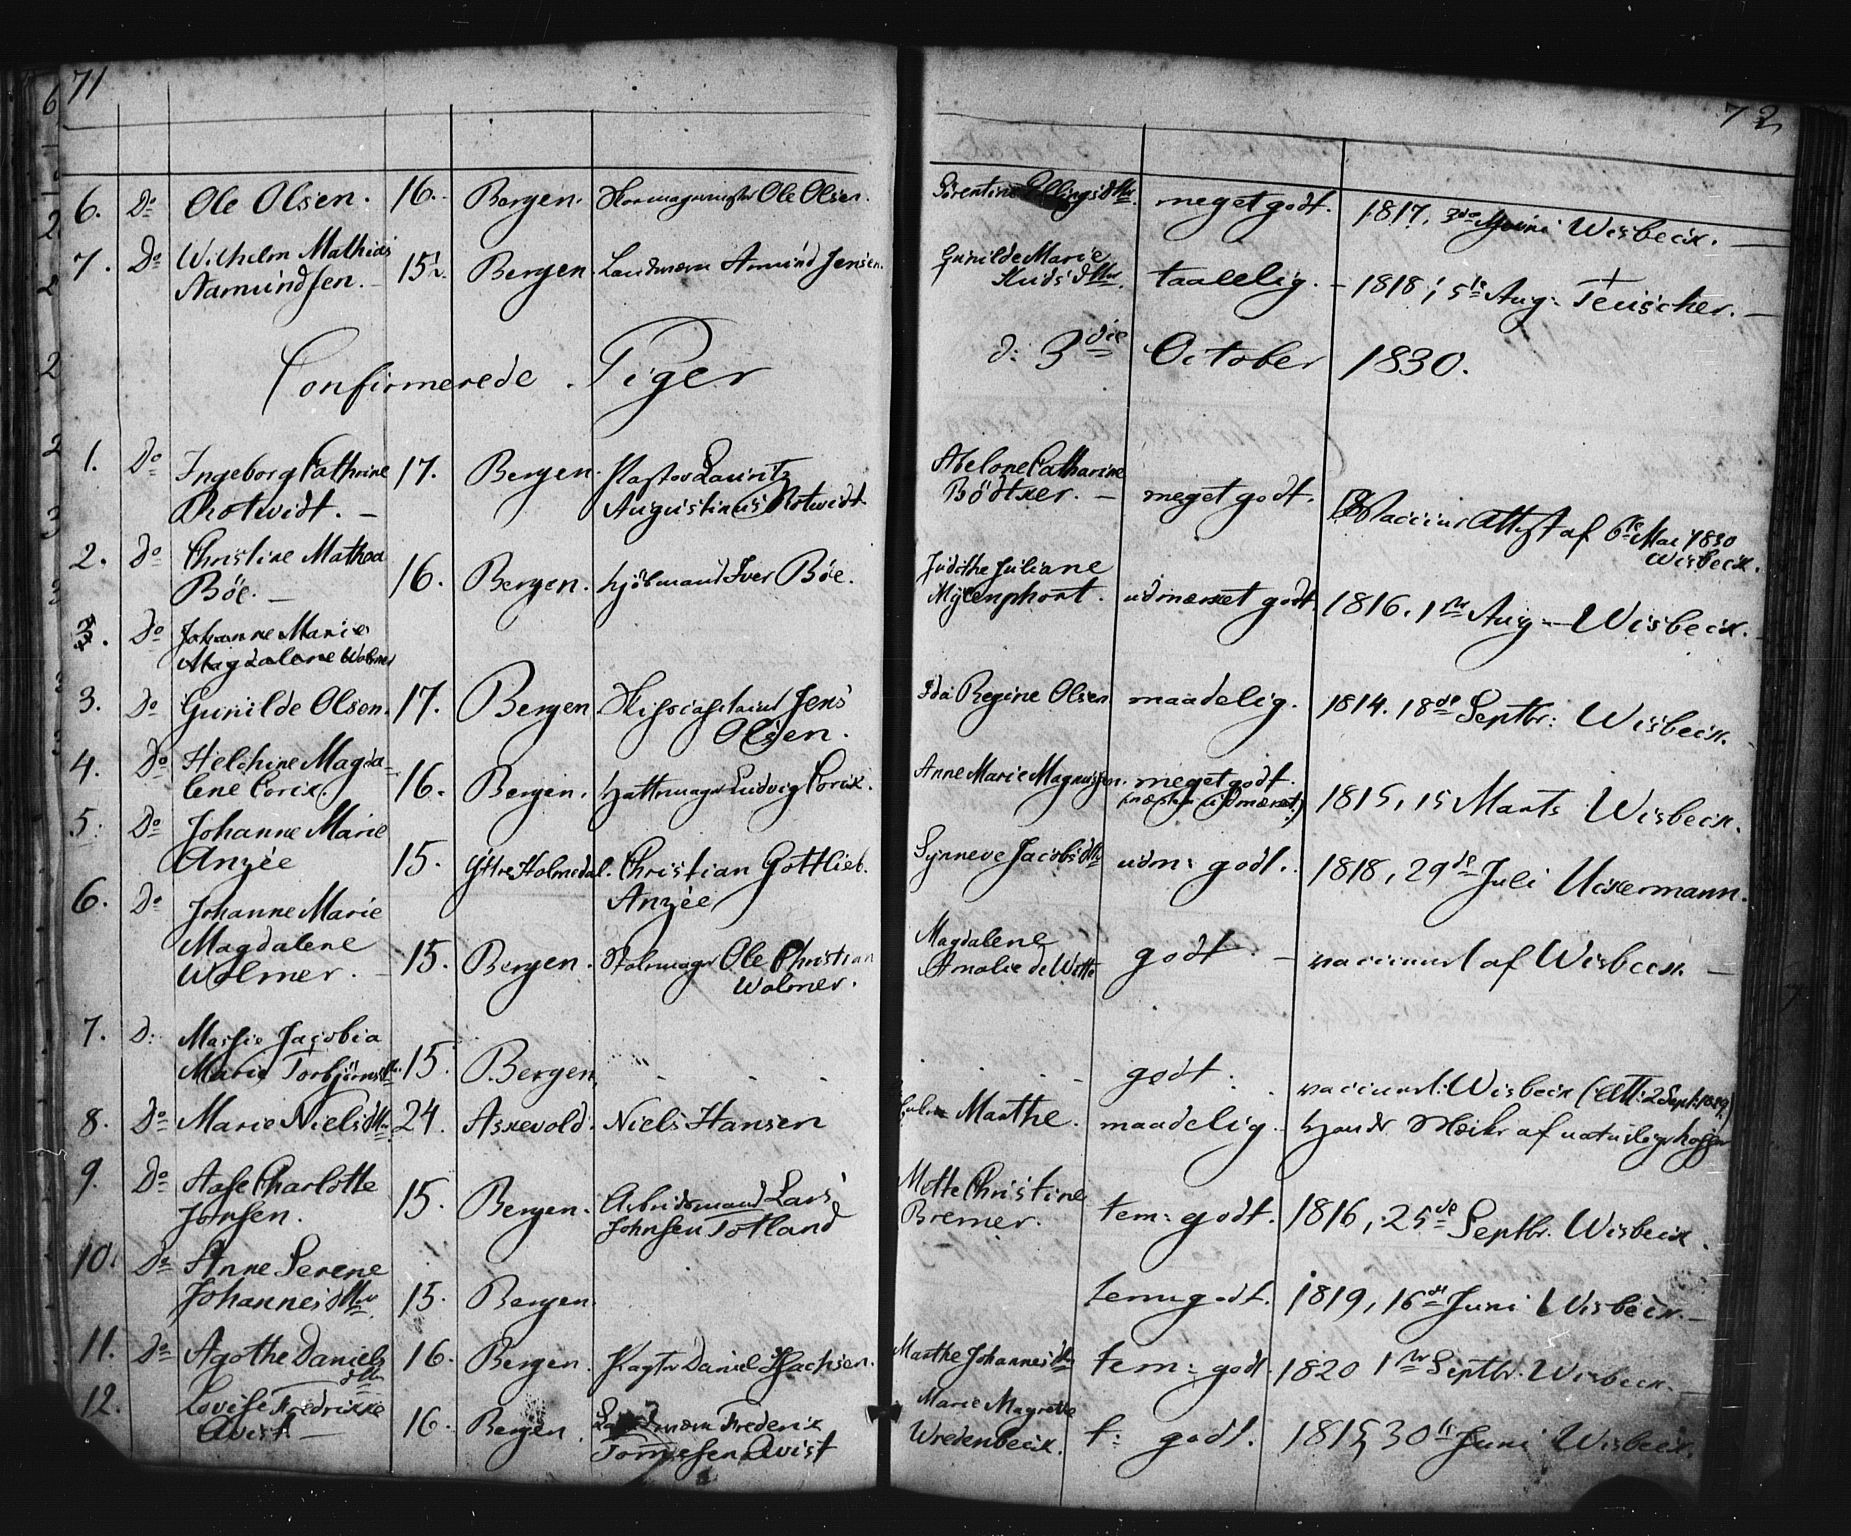 71
72
6. Do Ole Olsen. 16. Bergen. Skomagermester Ole Olsen. Sørentine Ellingsdtr. meget godt. 1817, 3die Wisbeck. —
7. Do Wilhelm Mathias
Aamundsen. — 15½. Bergen Landmann Amund Jensen. Gunilde Marie
Knudsdtr. taalelig. — 1818, 5te Aug: Teuscher. —
Confirmerede Piger d: 3die October 1830.
1. Do Ingeborg Cathrine
Rotwidt. — 17. Bergen. Pastor Lauritz
Augustinus Rotwidt Abelone Catharine
Bödtker. — meget godt. Attest af 6te Mai 1830
Wisbeck.
2. Do Christine Mathea
Böe. — 16. Bergen. Iver Böe. Judithe Juliane
Mylenphort. udmærket godt 1816. 1ste Aug. — Wisbeck. —
3. Do Johanne Marie
Magdalene Wolmer
3. Do Gunilde Olsen. 17. Bergen Jens
Olsen. Ida Regine Olsen maadelig. 1814. 18de Septbr: Wisbeck.
4. Do Helchine Magda-
lene Corix. 16. Bergen. Hattemager Ludvig Corix. Anne Marie Magnussen. meget godt.
(næsten udmærket) 1815, 15 Marts Wisbeck.
5. Do Johanne Marie
Anzée 15. Yttre Holmedal. Christian Gottlieb
Anzée Synneve Jacobsdtr udm: godt. 1818, 29de Juli Uckermann.
6. Do Johanne Marie
Magdalene
Wolmer. — 15. Bergen. Stolmager Ole Christian
Wolmer. Magdalene
Amalie de Witte godt. — vaccineret af Wisbeck. —
7. D: Jacobia
Marie Torbjørnsdtr. 15. Bergen godt. vaccineret: Wisbeck (Att: 2 Sept: 1829)
8. Do Marie Nielsdtr 24. Askevold. Niels Hansen Marthe. maadelig. af naturlige kopper
9. Do Aase Charlotte
Jonsen. 15. Bergen. Arbeidsmand Lars
Johnsen Totland Mette Christine
Bremer. tem: godt. 1816, 25de Septbr. Wisbeck.
10. Do Anne Serene
Johannesdtr 15. Bergen. temm godt. 1819, 16de Juni Wisbeck. —
11. Do Agothe Daniels
dtr 16. Bergen. Daniel Hachsen. Marthe Johannesdtr tem: godt. 1820 1ste Septbr. Wisbeck. —
12. Lovise Fredrikke
Qvist — 16. Bergen. Frederik
Tønnesen Qvist Marie Magrette
Wredenbeck. t: godt. 1815, 30te Juni Wisbeck.